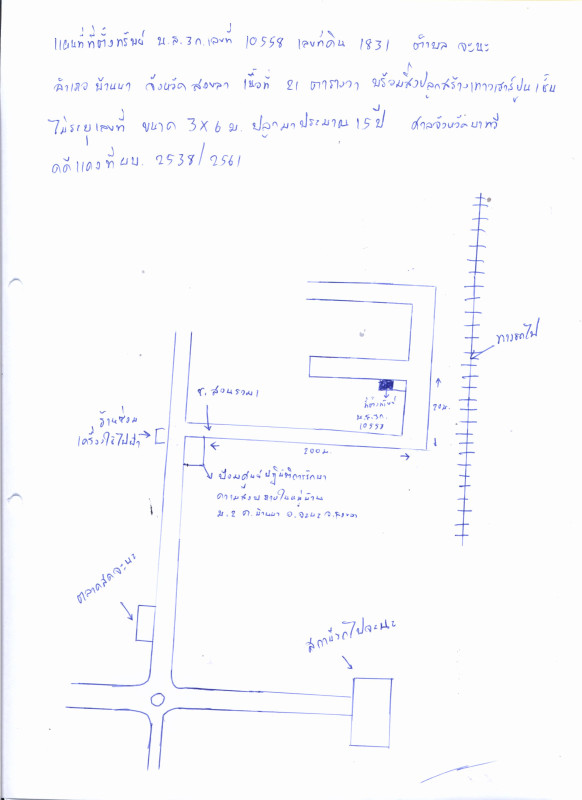 แผนที่ที่ตั้งทรัพย์ น.ส.3ก. เลขที่ 10558 เลขที่ดิน 1831 ตำบล จะนะ
อำเภอ บ้านนา จังหวัด สงขลา เนื้อที่ 21 ตารางวา พร้อมสิ่งปลูกสร้างทาวเฮาร์ปูน 1 ชั้น
ไม่ระบุเลขที่ ขนาด 3x6 ม. ปลูกมาประมาณ 15 ปี ศาลจังหวัดนาทวี
คดีแดงที่ ผบ. 2538/2561
ทางรถไฟ
ที่ตั้งทรัพย์
น.ส.3ก.
10558
70 ม.
ซ.
ร้านซ่อม
เครื่องใช้ไฟฟ้า
200 ม.
ป้อมศูนย์ปฏิบัติการรักษา
ความสงบภายในหมู่บ้าน
ม.2 ต.บ้านนา อ.จะนะ จ.สงขลา
ตลาดสดจะนะ
สถานีรถไฟจะนะ